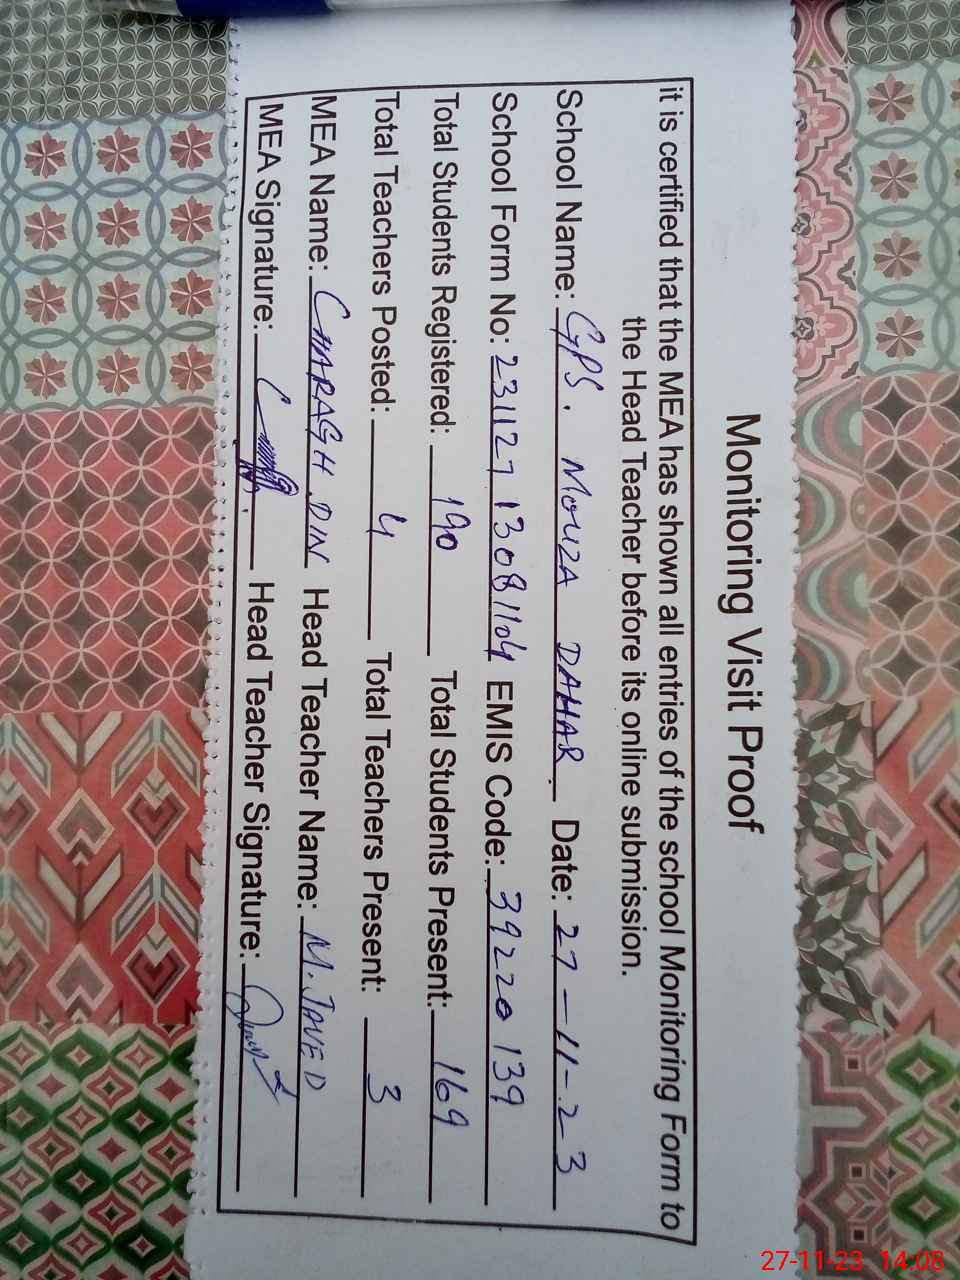 Monitoring Visit Proof
it is certified that the MEA has shown all entries of the school Monitoring Form to
the Head Teacher before its online submission.
School Name: GPS. MOUZA DAHAR. Date: 27-11-23
School Form No: 231127 13081104 EMIS Code: 39220139
Total Students Registered: 190 Total Students Present: 169
Total Teachers Posted: 4 Total Teachers Present: 3
MEA Name: CHARAGH DIN Head Teacher Name: M. JAVED
MEA Signature: Head Teacher Signature:
27-11-23 14:08